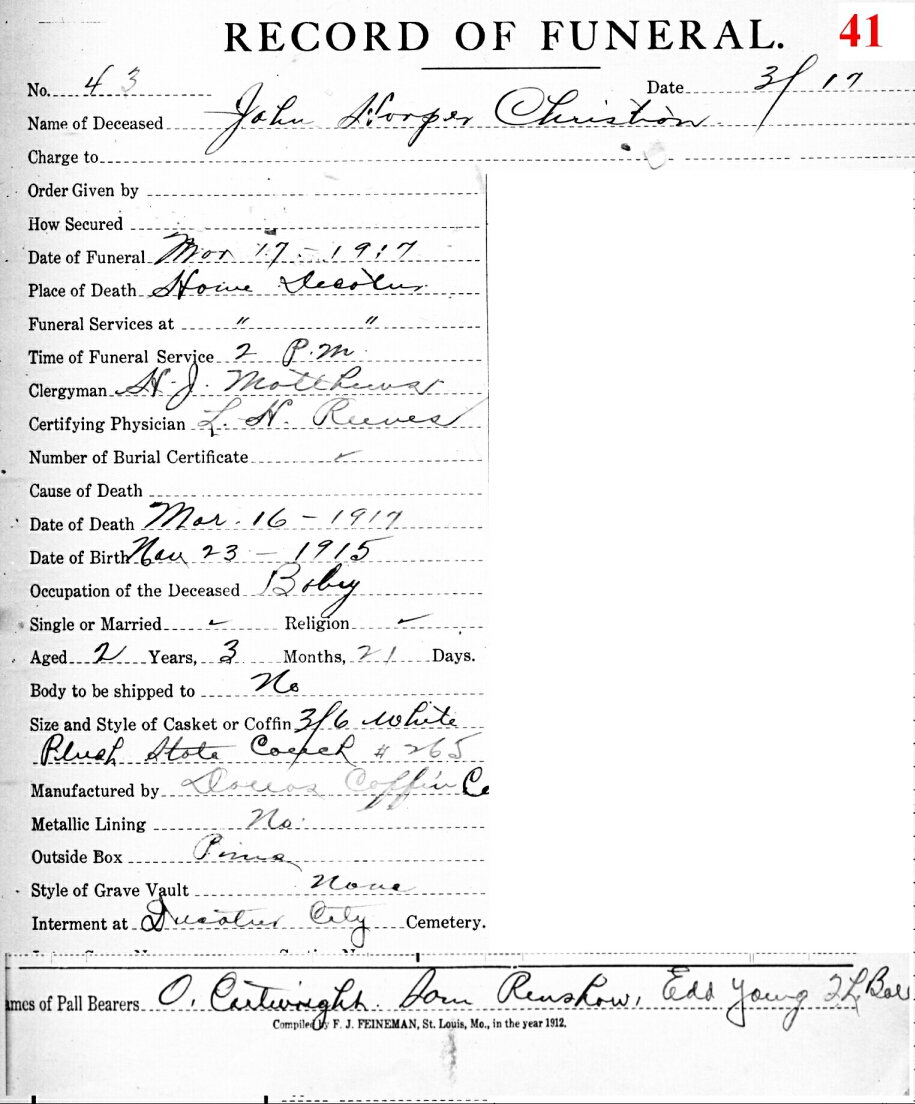 RECORD OF FUNERAL. 41
No. 43 Date 3/17
Name of Deceased John Hooper Christian
Charge to
Order Given by
How Secured
Date of Funeral Mar 17 - 1917
Place of Death Home Decatur
Funeral Services at " "
Time of Funeral Service 2 P.M.
Clergyman H. J. Matthews
Certifying Physician L. H. Reeves
Number of Burial Certificate ✓
Cause of Death
Date of Death Mar. 16 - 1917
Date of Birth Nov 23 - 1915
Occupation of the Deceased Baby
Single or Married ✓ Religion ✓
Aged 2 Years, 3 Months, 21 Days.
Body to be shipped to No
Size and Style of Casket or Coffin 3/6 White
Plush State Couch # 265
Manufactured by Dallas Coffin Co
Metallic Lining No.
Outside Box Pine
Style of Grave Vault None
Interment at Decatur City Cemetery.
ames of Pall Bearers O. Cartwright. Sam Renshaw, Edd Young
Compiled by F. J. FEINEMAN, St. Louis, Mo., in the year 1912.